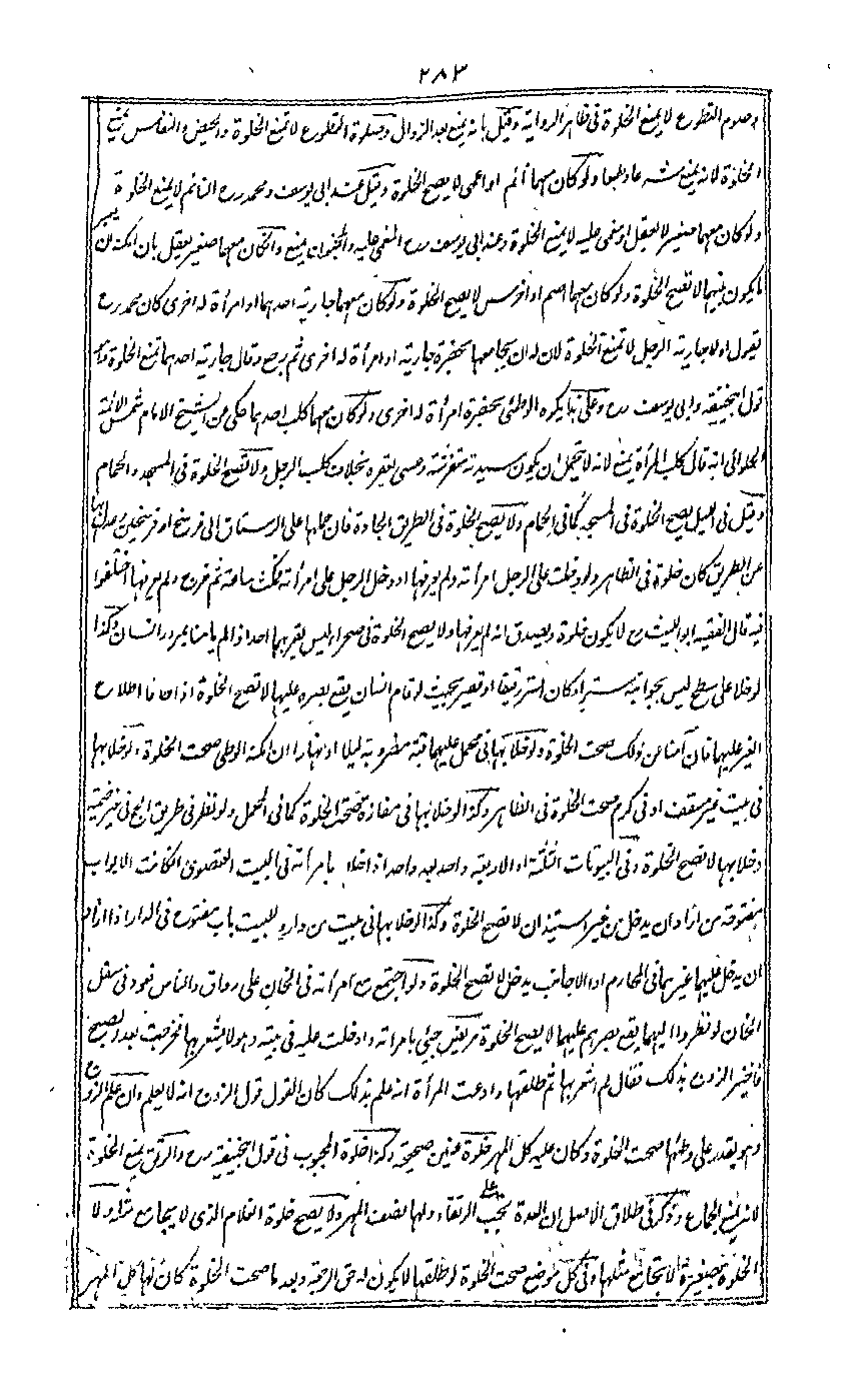 ٢٨٣
وصوم التطوع لا يمنع الخلوة فى ظاهر الرواية وقيل بانه يمنع بعد الزوال وصلوة التطوع لا تمنع الخلوة والحيض والنفاس يمنع
الخلوة لانه يمنع عادة وطبعا ولو كان معهما نائم او اعمى لا يصح الخلوة وقيل عند ابى يوسف ومحمد رح النائم لا يمنع الخلوة
ولو كان معهما صغير لا يعقل او مغمى عليه لا يمنع الخلوة وعند ابى يوسف رح المغمى عليه والمجنون يمنع وان كان معهما صغير يعقل بان امكنه ان يعبر
ما يكون بينهما لا تصح الخلوة ولو كان معهما اصم او اخرس لا يصح الخلوة ولو كان معهما جارية احدهما او امرأة له اخرى كان محمد رح
يقول اولا جارية الرجل لا تمنع الخلوة لان له ان يجامعها بحضرة جارية او امرأة له اخرى ثم رجع وقال جارية احدهما تمنع الخلوة وهو
قول ابيحنيفة وابى يوسف رح وعلى هذا يكره الوطئ بحضرة امرأة له اخرى ولو كان معهما كلب احدهما حكى عن الشيخ الامام شمس الائمة
الحلوائى انه قال كلب المرأة يمنع لانه لا يتحمل ان يكون سيدته مستفرشة وعسى يعقره بخلاف كلب الرجل ولا تصح الخلوة فى المسجد والحمام
وقيل فى الليل يصح الخلوة فى المسجد كما فى الحمام ولا يصح الخلوة فى الطريق الجادة فان حملها على الرستاق الى فرسخ او فرسخين وعدل بها
عن الطريق كان خلوة فى الظاهر ولو دخلت على الرجل امرأته ولم يعرفها او دخل الرجل على امرأته فمكث ساعة ثم خرج ولم يعرفها اختلفوا
فيه قال الفقيه ابو الليث رح لا يكون خلوة ويصدق انه لم يعرفها ولا يصح الخلوة فى صحراء ليس بقربهما احد اذا لم يامنا مرور انسان وكذا
لو خلا على سطح ليس بجوانبه ستر او كان الستر رقيقا او قصيرا بحيث لو قام انسان يقع بصره عليهما لا تصح الخلوة اذا خافا اطلاع
الغير عليهما فان آمنا عن ذلك صحت الخلوة ولو خلا بها فى محمل عليهما قبة مضروبة ليلا او نهارا ان امكنه الوطئ صحت الخلوة ولو خلا بها
فى بيت غير مسقف او فى كرم صحت الخلوة فى الظاهر وكذا لو خلا بها فى مفازة صحت الخلوة كما فى المحمل ولو نظر فى طريق الحج فى غير خيمة
وخلا بها لا تصح الخلوة وفى البيوتات الثلثة او الاربعة واحد بعد واحد اذا خلا بامرأته فى البيت القصوى ان كانت الابواب
مفتوحة من اراد ان يدخل من غير استيذان لا تصح الخلوة وكذا لو خلا بها فى بيت من دار وللبيت باب مفتوح فى الدار اذا اراد
ان يدخل عليهما غيرهما فى المحارم او الاجانب يدخل لا تصح الخلوة ولو اجتمع مع امرأته فى الخان على رواق والناس قعود فى سفل
الخان لو نظروا اليهما يقع بصرهم عليهما لا يصح الخلوة مريض جيئ بامراته وادخلت عليه فى بيته وهو لا يشعر بها فخرجت بعد الصبح
فاخبر الزوج بذلك فقال لم اشعر بها ثم طلقها وادعت المرأة انه علم بذلك كان القول قول الزوج انه لا يعلم وان علم الزوج
وهو يقدر على وطئها صحت الخلوة وكان عليه كل المهر خلوة عنين صحيحة وكذا خلوة المجبوب فى قول ابيحنيفة رح والرتق يمنع الخلوة
لانه يمنع الجماع وذكر فى طلاق الاصل ان العدة تجب على الرتقاء ولها نصف المهر ولا يصح خلوة الغلام الذى لا يجامع مثله ولا
الخلوة بصغيرة لا يجامع مثلها وفى كل موضع صحت الخلوة لو طلقها لا يكون له حق الرجعة وبعد ما صحت الخلوة كان لها كل المهر